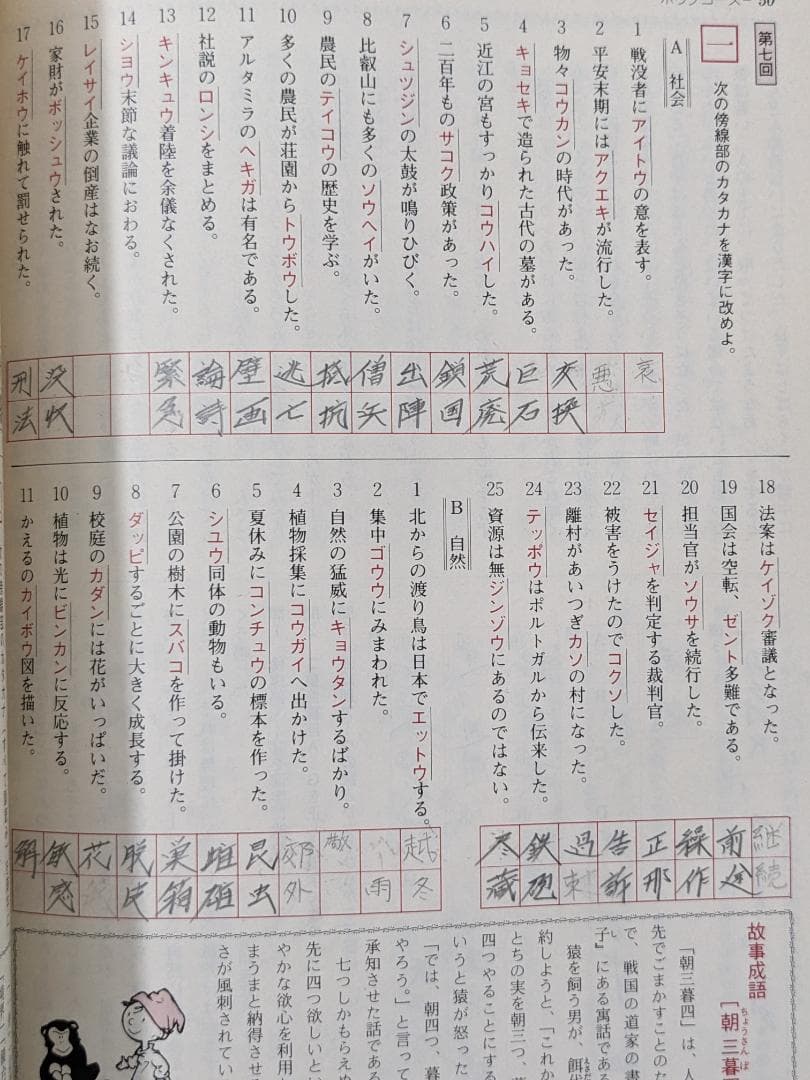 第七回
一 次の傍線部のカタカナを漢字に改めよ。
A 社会
1 戦没者にアイトウの意を表す。
2 平安末期にはアクエキが流行した。
3 物々コウカンの時代があった。
4 キョセキで造られた古代の墓がある。
5 近江の宮もすっかりコウハイした。
6 二百年ものサコク政策があった。
7 シュツジンの太鼓が鳴りひびく。
8 比叡山にも多くのソウヘイがいた。
9 農民のテイコウの歴史を学ぶ。
10 多くの農民が荘園からトウボウした。
11 アルタミラのヘキガは有名である。
12 社説のロンシをまとめる。
13 キンキュウ着陸を余儀なくされた。
14 ショウ末節な議論におわる。
15 レイサイ企業の倒産はなお続く。
16 家財がボッシュウされた。
17 ケイホウに触れて罰せられた。
哀
悪
交換
巨石
荒廃
鎖国
出陣
僧兵
抵抗
逃亡
壁画
論詩
緊急
没収
刑法
18 法案はケイゾク審議となった。
19 国会は空転、ゼント多難である。
20 担当官がソウサを続行した。
21 セイジャを判定する裁判官。
22 被害をうけたのでコクソした。
23 離村があいつぎカソの村になった。
24 テッポウはポルトガルから伝来した。
25 資源は無ジンゾウにあるのではない。
継続
前途
操作
正邪
告訴
過
鉄砲
尽蔵
B 自然
1 北からの渡り鳥は日本でエットウする。
2 集中ゴウウにみまわれた。
3 自然の猛威にキョウタンするばかり。
4 植物採集にコウガイへ出かけた。
5 夏休みにコンチュウの標本を作った。
6 シユウ同体の動物もいる。
7 公園の樹木にスバコを作って掛けた。
8 ダッピするごとに大きく成長する。
9 校庭のカダンには花がいっぱいだ。
10 植物は光にビンカンに反応する。
11 かえるのカイボウ図を描いた。
越冬
雨
郊外
昆虫
雌雄
巣箱
脱皮
花
敏感
解
故事成語
「朝三暮四」は、人
先でごまかすことのた
で、戦国の道家の書
子』にある寓話である
猿を飼う男が、餌代
約しようと、「これか
とちの実を朝三つ、暮
四つやることにする
いうと猿が怒った
「では、朝四つ、暮
やろう。」と言って
承知させた話である
七つしかもらえぬ
先に四つ欲しいとい
やかな欲心を利用
まうまと納得させる
さが風刺されてい